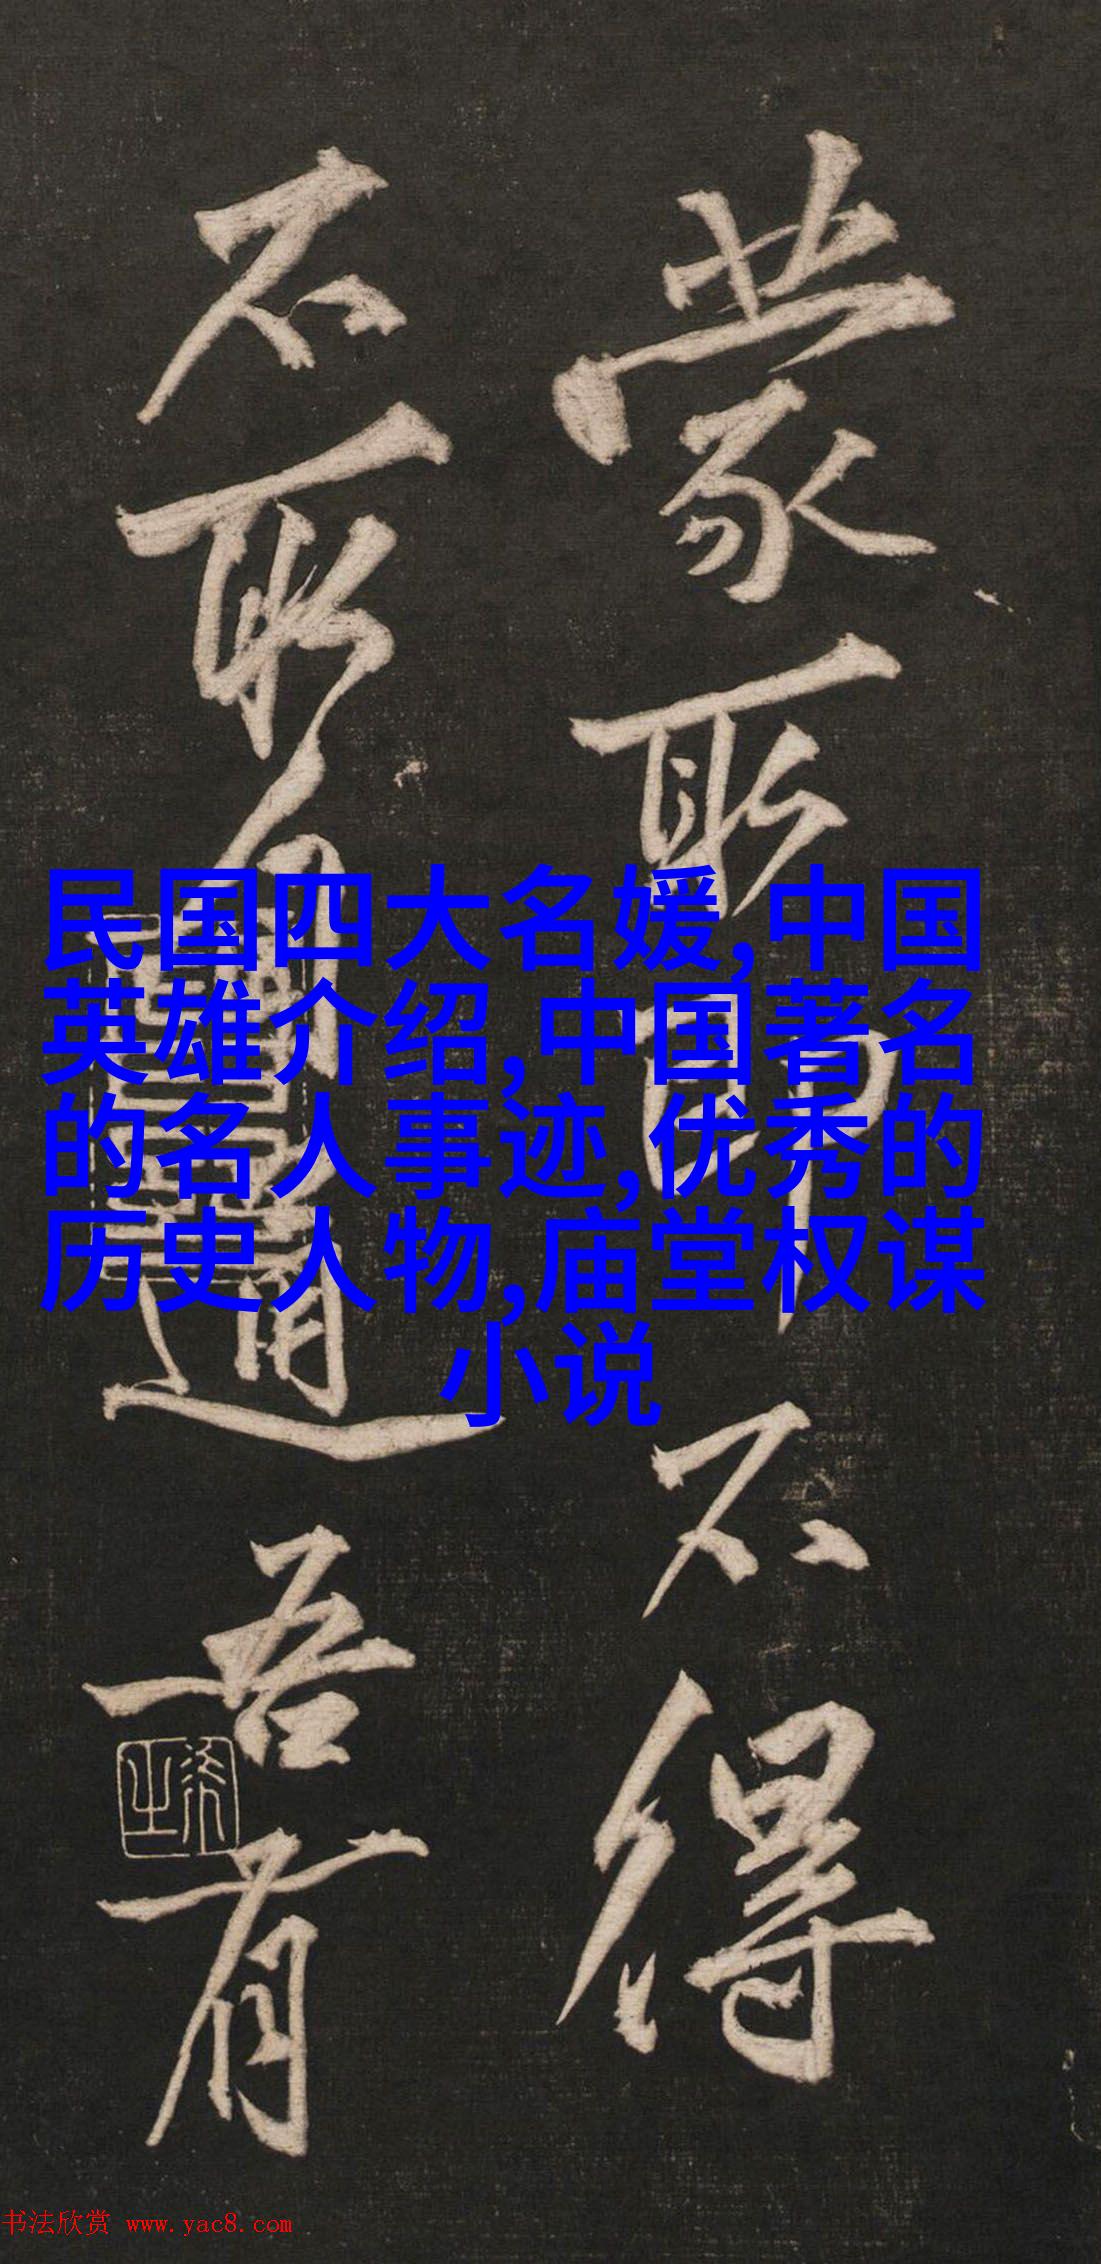 蒙所不得
不所道吾有
民国四大名媛,中国
英雄介绍,中国著名
的名人事迹,优秀的
历史人物,庙堂权谋
小说
书法欣赏 www.yac8.com